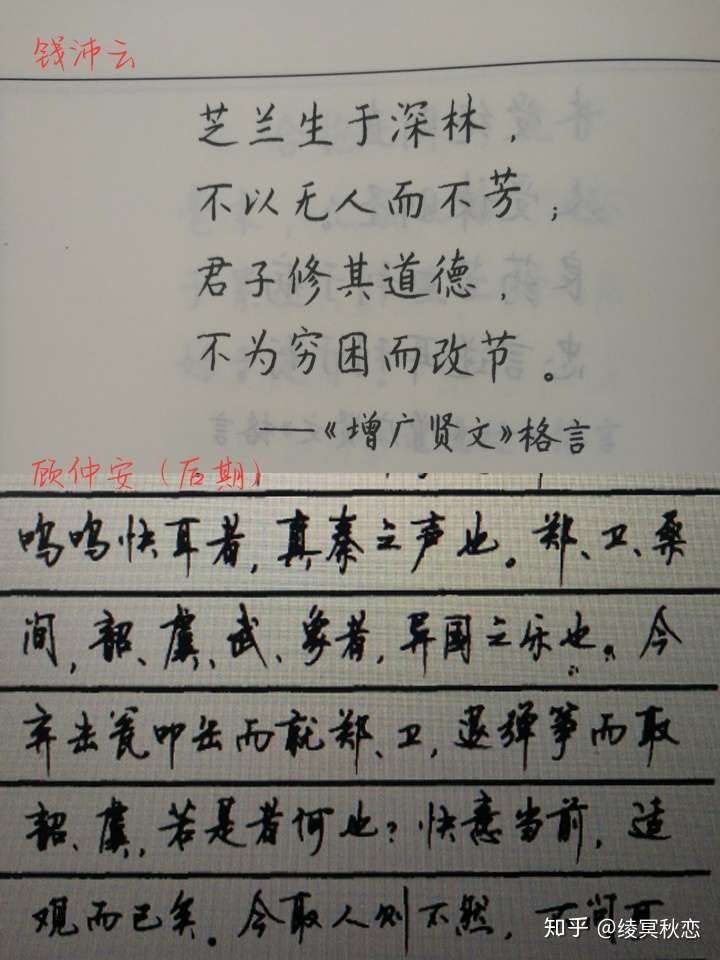 钱沛云
芝兰生于深林，
不以无人而不芳；
君子修其道德，
不为穷困而改节。
——《增广贤文》格言
顾仲安（后期）
呜呜快耳者，真秦之声也。郑、卫、桑
间，韶、虞、武、象者，异国之乐也。今
弃击瓮叩缶而就郑、卫，退弹筝而取
韶、虞，若是者何也？快意当前，适
观而已矣。今取人则不然，不问可
知乎 @绫冥秋恋